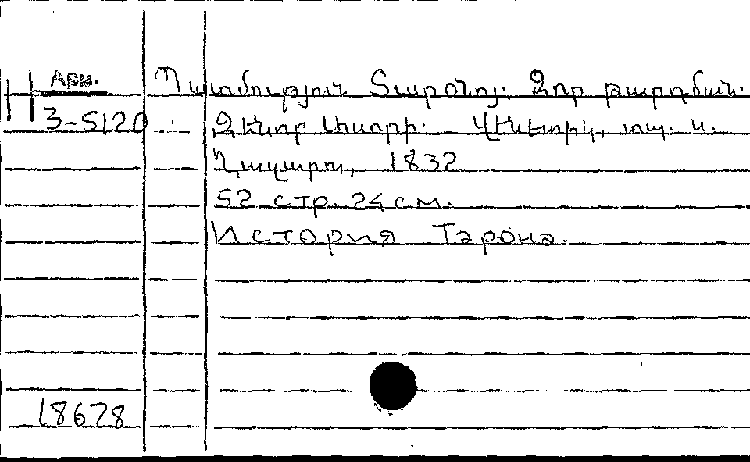 Арм. Պատմություն Տարօնոյ. Զոր թարգման.
3-5120 Զենոբ Ասորի. – Վենետիկ, տպ. ս.
Ղազարու, 1832
52 стр. 24 см.
История Тарона.
18678